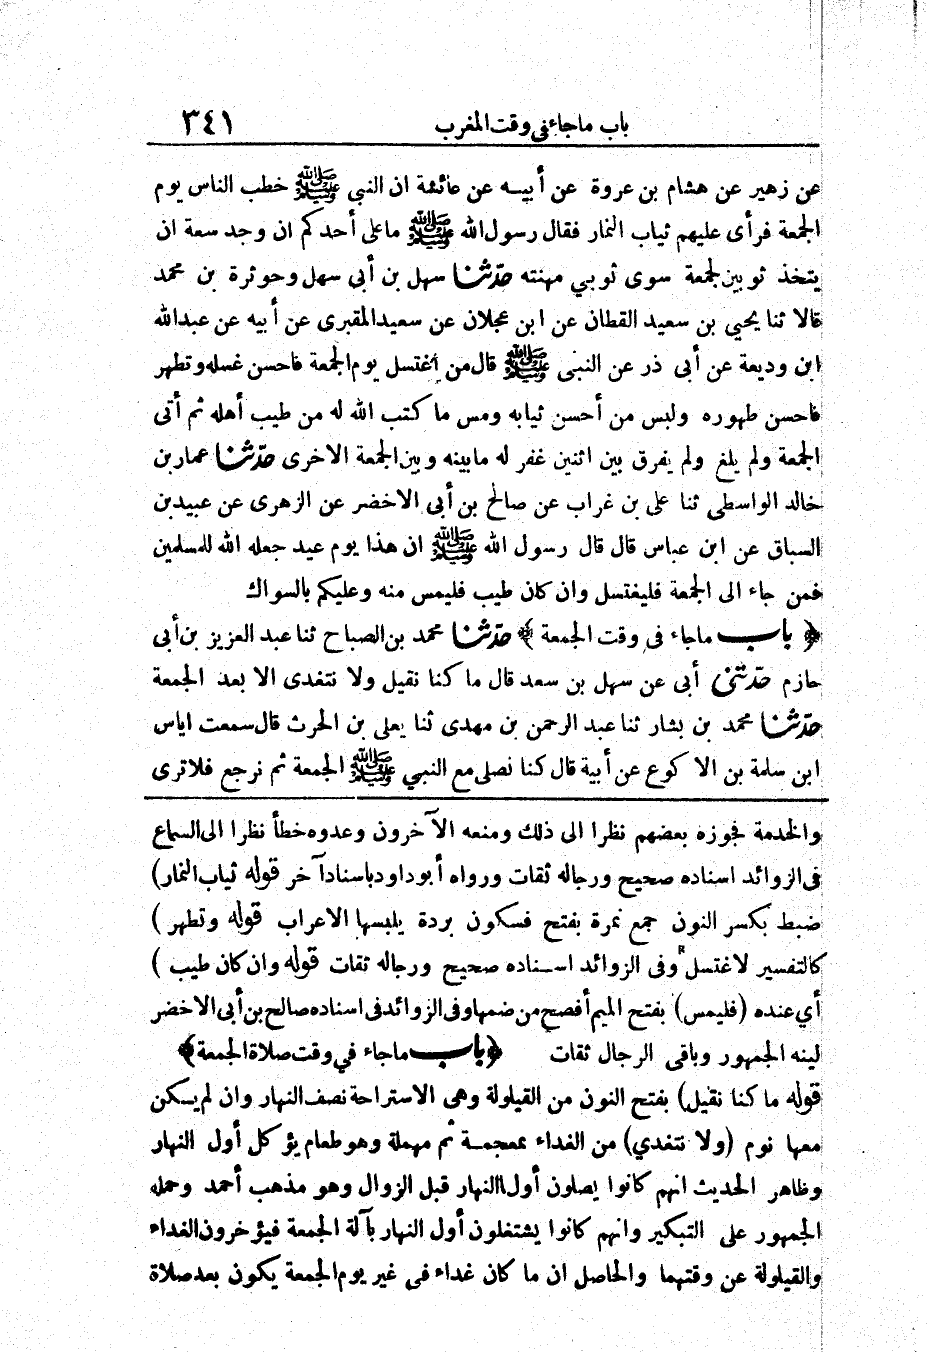 باب ماجاء في وقت المغرب ٣٤١
عن زهير عن هشام بن عروة عن أبيـه عن عائشة ان النبي ﷺ خطب الناس يوم
الجمعة فرأى عليهم ثياب النمار فقال رسول الله ﷺ ما على أحدكم ان وجد سعة ان
يتخذ ثوبين لجمعة سوى ثوبي مهنته حدّثنا سهل بن أبى سهل وحوثرة بن محمد
قالا ثنا يحيى بن سعيد القطان عن ابن عجلان عن سعيد المقبرى عن أبيه عن عبدالله
ابن وديعة عن أبى ذر عن النبى ﷺ قال من اغتسل يوم الجمعة فاحسن غسله وتطهر
فاحسن طهوره ولبس من أحسن ثيابه ومس ما كتب الله له من طيب أهله ثم أتى
الجمعة ولم يلغ ولم يفرق بين اثنين غفر له مابينه وبين الجمعة الاخرى حدّثنا عمار بن
خالد الواسطى ثنا على بن غراب عن صالح بن أبى الاخضر عن الزهرى عن عبيد بن
السباق عن ابن عباس قال قال رسول الله ﷺ ان هذا يوم عيد جعله الله للمسلمين
فمن جاء الى الجمعة فليغتسل وان كان طيب فليمس منه وعليكم بالسواك
﴿ باب ماجاء فى وقت الجمعة ﴾ حدّثنا محمد بن الصباح ثنا عبد العزيز بن أبى
حازم حدّثنى أبى عن سهل بن سعد قال ما كنا نقيل ولا نتغدى الا بعد الجمعة
حدّثنا محمد بن بشار ثنا عبد الرحمن بن مهدى ثنا يعلى بن الحرث قال سمعت اياس
ابن سلمة بن الا كوع عن أبية قال كنا نصلى مع النبي ﷺ الجمعة ثم نرجع فلا ترى
والخدمة فجوزه بعضهم نظرا الى ذلك ومنعه الآخرون وعدوه خطأ نظرا الى السماع
فى الزوائد اسناده صحيح ورجاله ثقات ورواه أبو داود باسناد آخر قوله ثياب النمار)
ضبط بكسر النون جمع نمرة بفتح فسكون بردة يلبسها الاعراب قوله وتطهر )
كالتفسير لاغتسل وفى الزوائد اسـناده صحيح ورجاله ثقات قوله وان كان طيب )
أي عنده (فليمس) بفتح الميم أفصح من ضمها وفى الزوائد فى اسناده صالح بن أبى الاخضر
لينه الجمهور وباقى الرجال ثقات ﴿باب ماجاء في وقت صلاة الجمعة﴾
قوله ما كنا نقيل) بفتح النون من القيلولة وهى الاستراحة نصف النهار وان لم يسكن
معها نوم (ولا نتغدي) من الغداء بمعجمـة ثم مهملة وهو طعام يؤكل أول النهار
وظاهر الحديث انهم كانوا يصلون أول االنهار قبل الزوال وهو مذهب أحمد وحمله
الجمهور على التبكير وانهم كانوا يشتغلون أول النهار بآلة الجمعة فيؤخرون الغداء
والقيلولة عن وقتهما والحاصل ان ما كان غداء فى غير يوم الجمعة يكون بعد صلاة